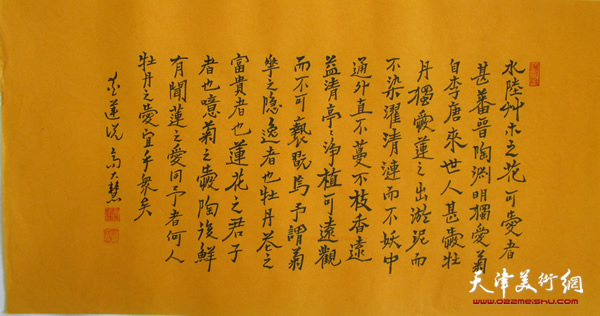 水陸艸木之花可愛者
甚蕃晉陶淵明獨愛菊
自李唐來世人甚愛牡
丹獨愛蓮之出淤泥而
不染濯清漣而不妖中
通外直不蔓不枝香遠
益清亭〻淨植可遠觀
而不可褻翫焉予謂菊
華之隱逸者也牡丹花之
富貴者也蓮花之君子
者也噫菊之愛陶後鮮
有聞蓮之愛同予者何人
牡丹之愛宜乎衆矣
愛蓮説 高
天津美術網
www.022meishu.com